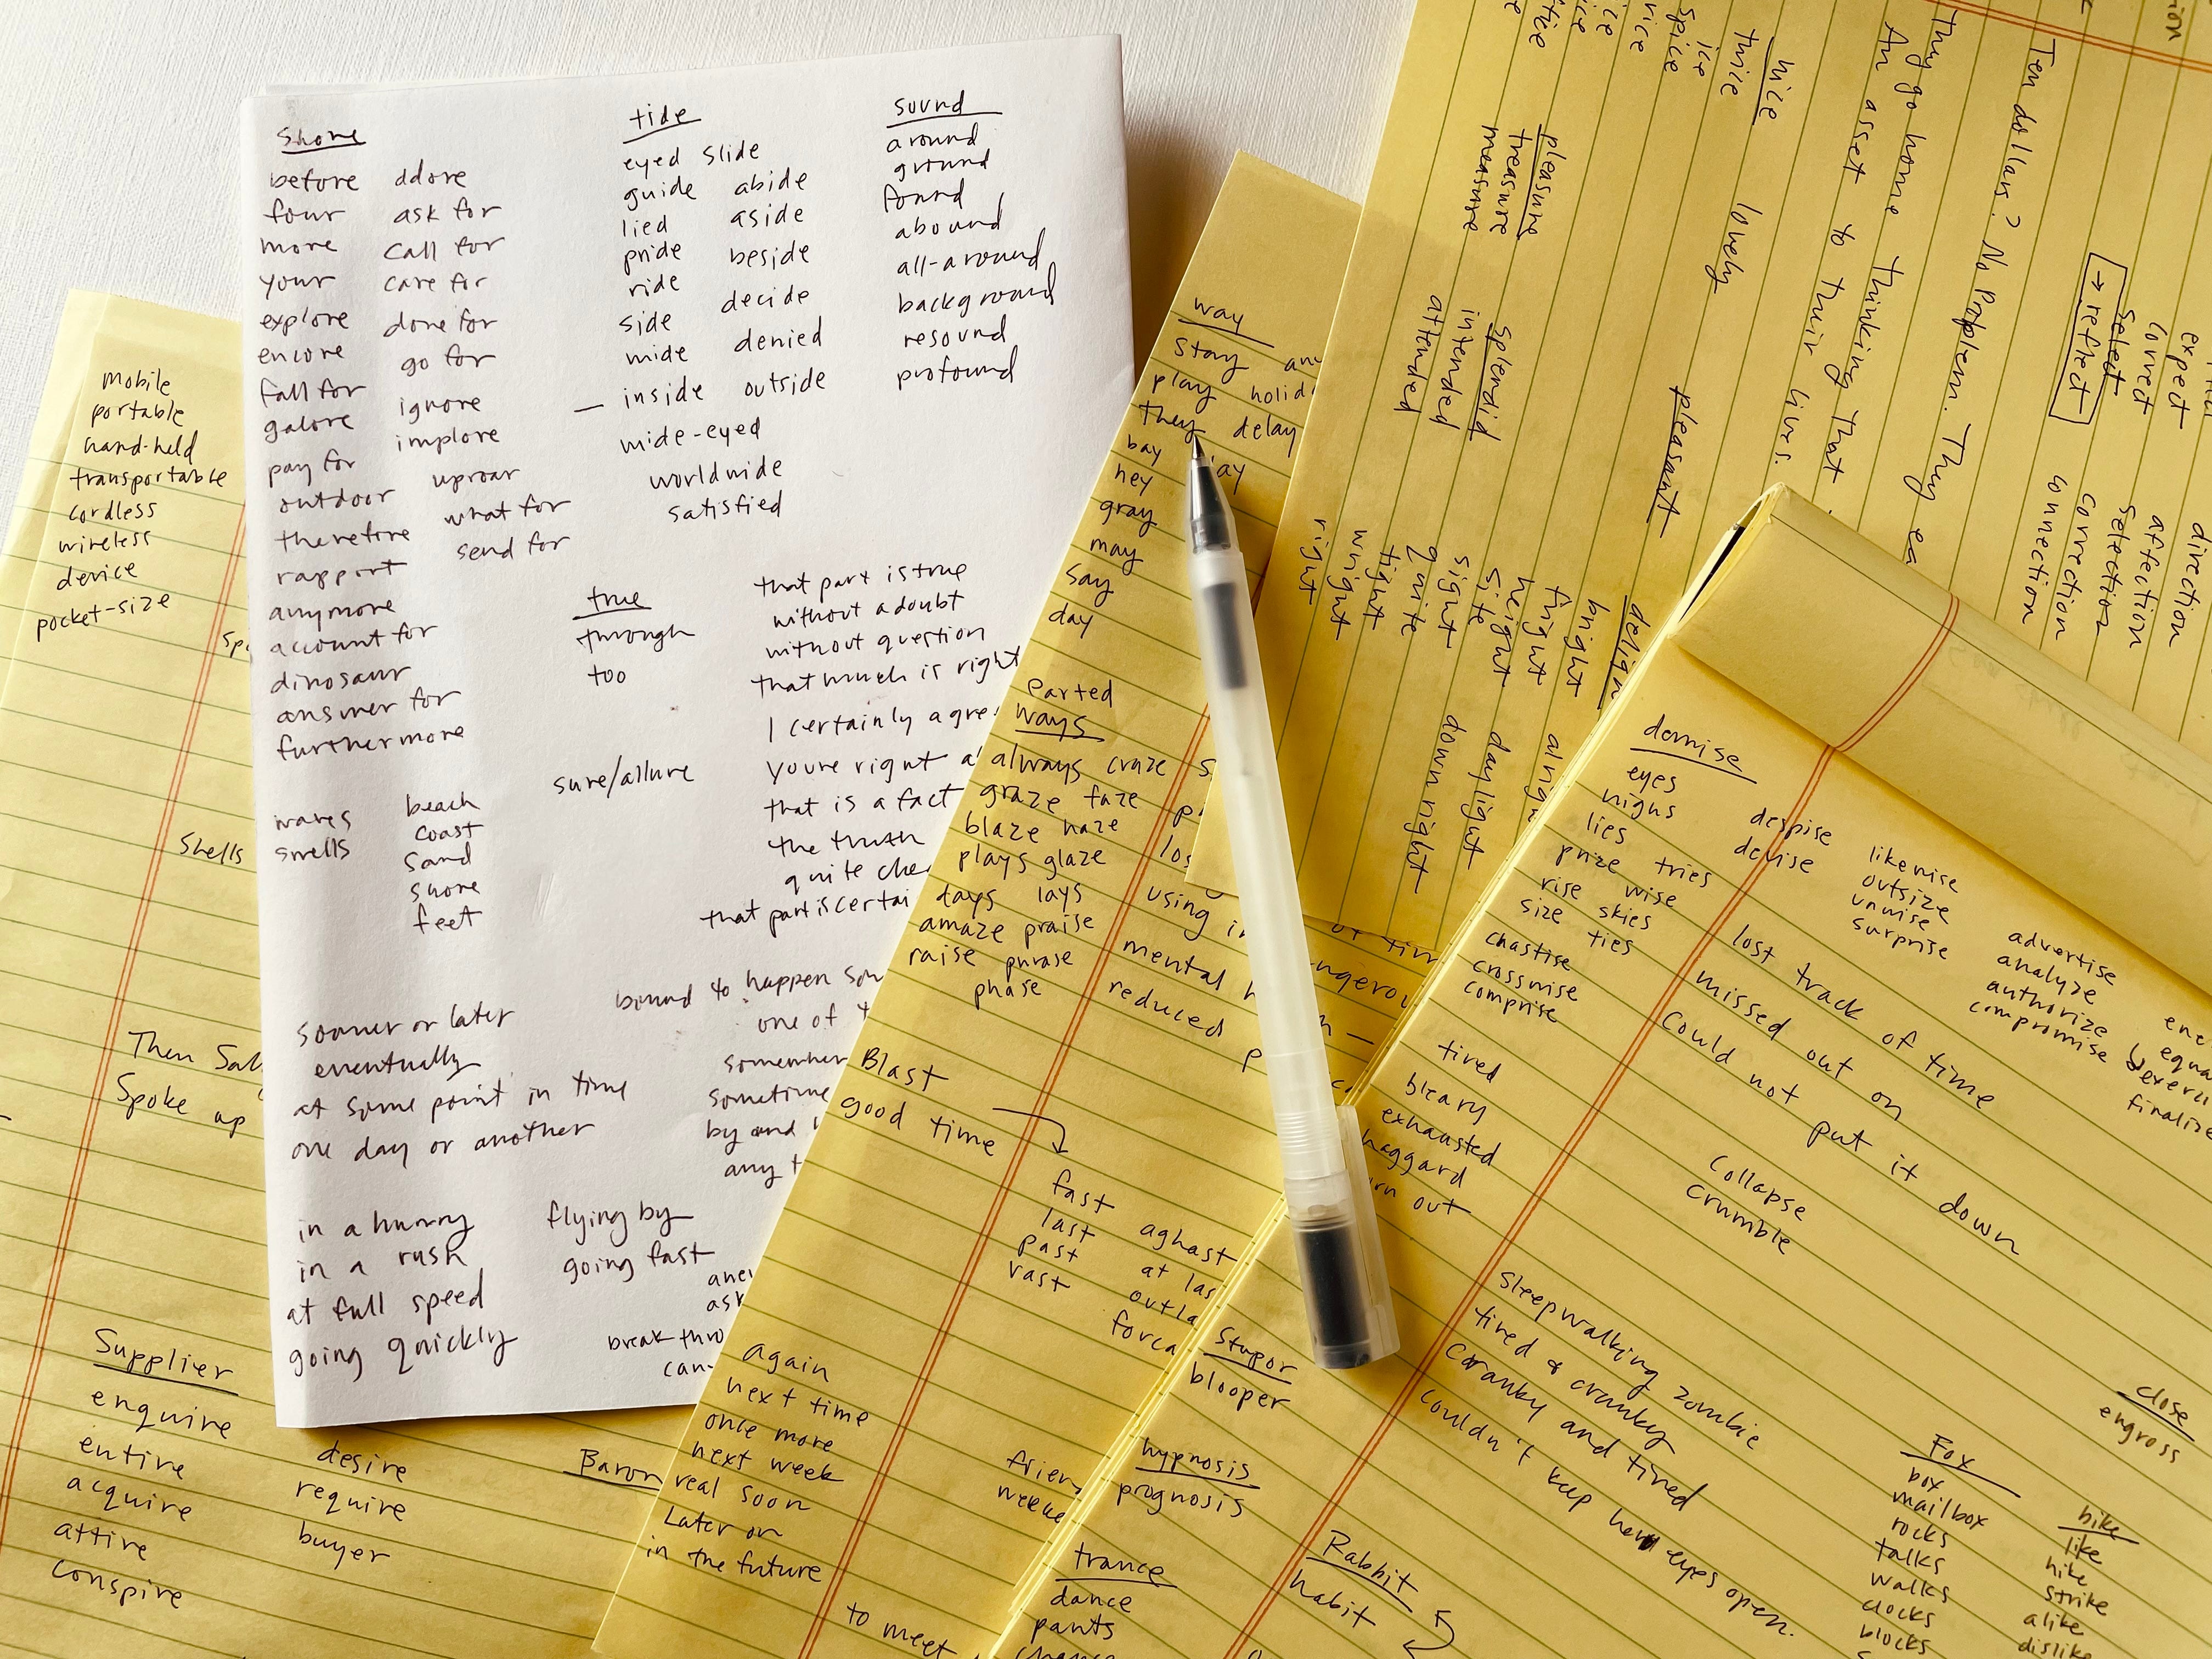 Shore
before adore
four ask for
more call for
your care for
explore done for
encore go for
fall for
galore ignore
pay for implore
outdoor uproar
therefore what for
rapport send for
anymore
account for
dinosaur
answer for
furthermore
tide
eyed slide
guide abide
lied aside
pride beside
ride
side decide
wide denied
inside outside
wide-eyed
worldwide
satisfied
sound
around
ground
found
abound
all-around
background
resound
profound
true
through
too
sure/allure
that part is true
without a doubt
without question
that much is right
I certainly agre
youre right a
that is a fact
the truth
quite clea
that part is certai
waves beach
smells coast
sand
shore
feet
sooner or later
eventually
at some point in time
one day or another
bound to happen som
one of t
somewher
sometime
by and
any t
in a hurry flying by
in a rush going fast
at full speed
going quickly
break thro
can
mobile
portable
hand-held
transportable
cordless
wireless
device
pocket-size
Shells
Then Sal
Spoke up
Supplier
enquire
entire desire
acquire require
attire buyer
conspire
Baron
way
stay
play holid
they delay
bay
hey
gray
may
say
day
Parted
ways
always craze
graze faze
blaze haze
plays glaze
days lays
amaze praise
raise phrase
phase
using i
mental h
reduced
Blast
good time
fast aghast
last at las
past outla
vast forca
again
next time
once more
next week
real soon
Later on
in the future
frien
weeke
to meet
Ten dollars? No Problem. They ea
They go home thinking that
An asset to their lives.
expect direction
covert affection
select selection
→ reflect correction
connection
nice
twice
ice
spice
vice
lovely
pleasant
pleasure
treasure
measure
splendid
intended
attended
delight
bright
fright alrigh
height
site daylight
sight downright
quite
tight
wright
right
demise
eyes
highs despise
lies devise
prize tries
rise wise
size skies
ties
chastise
crosswise
comprise
likewise
outsize
unwise
surprise
advertise
analyze
authorize
compromise
finalize
lost track of time
missed out on
Could not put it down
tired
bleary
exhausted
haggard
out
Collapse
crumble
sleepwalking zombie
tired & cranky
Cranky and tired
couldn't keep her eyes open.
Stupor
blooper
hypnosis
prognosis
trance
dance
pants
Rabbit
habit
close
engross
Fox
box
mailbox
rocks
talks
walks
clocks
blocks
bike
like
hike
strike
alike
dislike